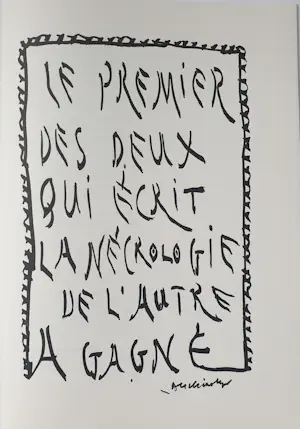 LE PREMIER
DES DEUX
QUI ÉCRIT
LA NÉCROLOGIE
DE L'AUTRE
A GAGNÉ
Alechinsky